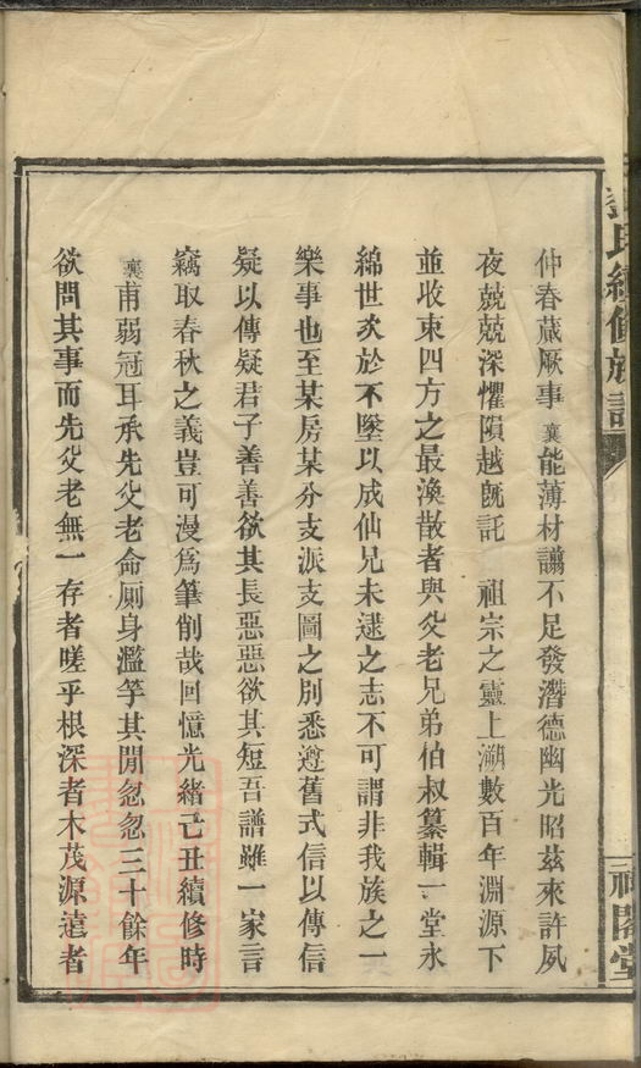 氏續修族譜
福閣堂
仲春蕆厥事襄能薄材譾不足發潛德幽光昭茲來許夙
夜兢兢深懼隕越既託 祖宗之靈上溯數百年淵源下
並收束四方之最渙散者與父老兄弟伯叔纂輯一堂永
綿世次於不墜以成仙兄未逮之志不可謂非我族之一
樂事也至某房某分支派支圖之別悉遵舊式信以傳信
疑以傳疑君子善善欲其長惡惡欲其短吾譜雖一家言
竊取春秋之義豈可漫為筆削哉回憶光緒己丑續修時
襄甫弱冠耳承先父老命厠身濫竽其閒忽忽三十餘年
欲問其事而先父老無一存者嗟乎根深者木茂源遠者